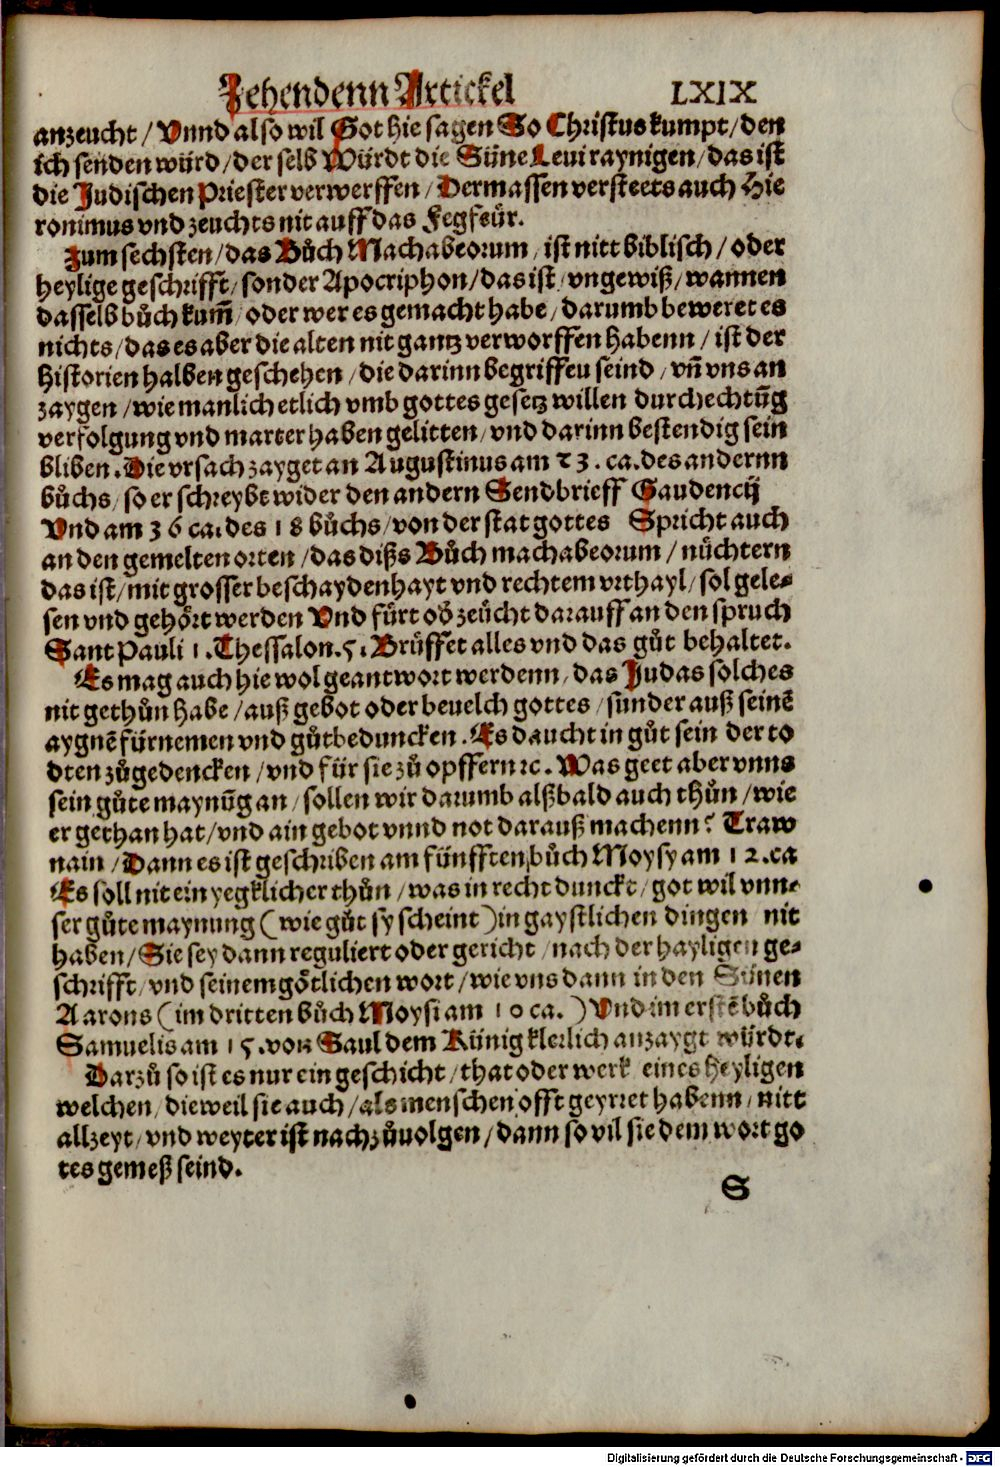 Zehendenn Artickel LXIX
anzeucht / Vnnd also wil Got hie sagen So Christus kumpt / den
ich senden würd / der selb Würdt die Süne Leui raynigen / das ist
die Judischen Priester verwerffen / Dermassen versteets auch Hie
ronimus vnd zeuchts nit auff das Fegfeür.
Zum sechsten / das Bůch Machabeorum / ist nitt biblisch / oder
heylige geschrifft / sonder Apocriphon / das ist / vngewiß / wannen
dasselb bůch kum̃ / oder wer es gemacht habe / darumb beweret es
nichts / das es aber die alten nit gantz verworffen habenn / ist der
Historien halben geschehen / die darinn begriffen seind / vñ vns an
zaygen / wie manlich etlich vmb gottes gesetz willen durchechtũg
verfolgung vnd marter haben gelitten / vnd darinn bestendig sein
bliben. Die vrsach zayget an Augustinus am 23. ca. des andernn
bůchs / so er schreybt wider den andern Sendbrieff Gaudencij
Vnd am 36 ca. des 18 bůchs / von der stat gottes Spricht auch
an den gemelten orten / das dißs Bůch machabeorum / nüchtern
das ist / mit grosser beschaydenhayt vnd rechtem vrthayl / sol gele-
sen vnd gehört werden Vnd fürt oď zeücht darauff an den spruch
Sant Pauli 1. Thessalon. 5. Brüffet alles vnd das gůt behaltet.
Es mag auch hie wol geantwort werdenn / das Judas solches
nit gethůn habe / auß gebot oder beuelch gottes / sunder auß seinẽ
aygnẽ fürnemen vnd gůtbeduncken. Es daucht in gůt sein der to
dten zůgedencken / vnd für sie zů opffern ꝛc. Was geet aber vnns
sein gůte maynũg an / sollen wir darumb alßbald auch thůn / wie
er gethan hat / vnd ain gebot vnnd not darauß machenn? Traw
nain / Dann es ist geschriben am fünfften bůch Moysy am 12. ca
Es soll nit ein yegklicher thůn / was in recht dunckt / got wil vnn-
ser gůte maynung (wie gůt sy scheint) in gaystlichen dingen nit
haben / Sie sey dann reguliert oder gericht / nach der hayligen ge-
schrifft / vnd seinem götlichen wort / wie vns dann in den Sünen
Aarons (im dritten bůch Moysi am 10 ca.) Vnd im erstẽ bůch
Samuelis am 15. von Saul dem Künig klerlich anzaygt würdt.
Darzů so ist es nur ein geschicht / that oder werk eines heyligen
welchen / dieweil sie auch / als menschen offt geyrret habenn / nitt
allzeyt / vnd weyter ist nachzůuolgen / dann so vil sie dem wort go
tes gemeß seind.
S
Digitalisierung gefördert durch die Deutsche Forschungsgemeinschaft - DFG